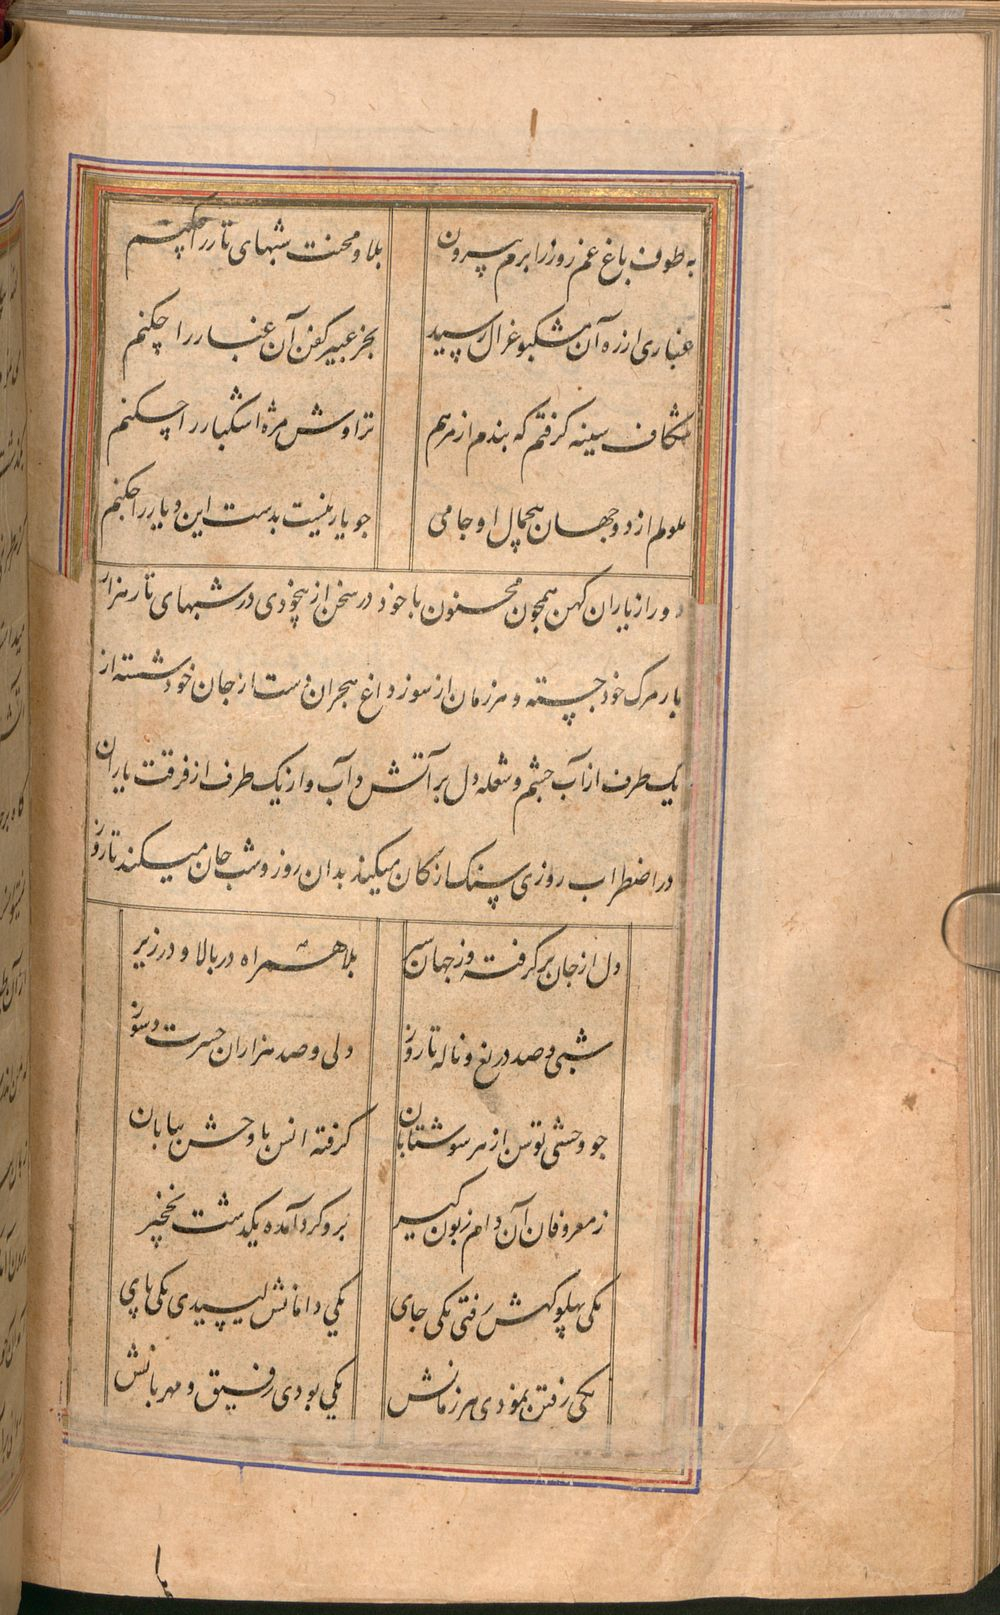 به طوف باغ غم روز را برم بیرون بلا و محنت شبهای تار را چکنم
غباری از ره آن مشکبو غزال رسید بجز عبیر کفن آن غبار را چکنم
شکاف سینه کرفتم که بندم از مرهم تراوش مژه اشکبار را چکنم
ملولم از دو جهان همچال او جامی چو یار نیست بدست این دیار را چکنم
دور از یاران کهن همچون مجنون با خود در سخن از بیخودی در شبهای تار هزار
بار مرک خود جسته و هر زمان از سوز داغ هجران دست از جان خود شسته از
یک طرف از آب چشم و شعله دل بر آتش و آب و از یک طرف از فرقت یاران
در اضطراب روزی سنک از کان میکند بدان روز و شب جان میکند تا روز
دل از جان بر کرفته وز جهان سیر بلا همراه در بالا و در زیر
شبی و صد دریغ و ناله تا روز دلی و صد هزاران حسرت و سوز
چو وحشی توسن از هر سو شتابان کرفته انس با وحش بیابان
ز معروفان آن دام زبون کیر برو کرد آمده یکدشت نخچیر
یکی پهلوکهش رفتی یکی جای یکی دامانش لیسیدی یکی پای
یکی رفتن نمودی هر زمانش یکی بودی رفیق و مهربانش